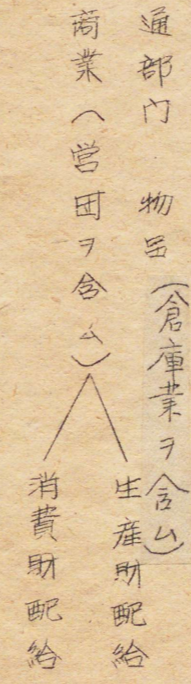 通部門　物品(倉庫業ヲ含ム)
商業(営団ヲ含ム)
生産財配給
消費財配給